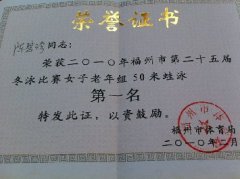 荣誉证书
同志：
荣获二〇一〇年福州市第二十五届
冬泳比赛女子老年组50米蛙泳
第一名
特发此证，以资鼓励。
福州市体育局
二〇一〇年二月